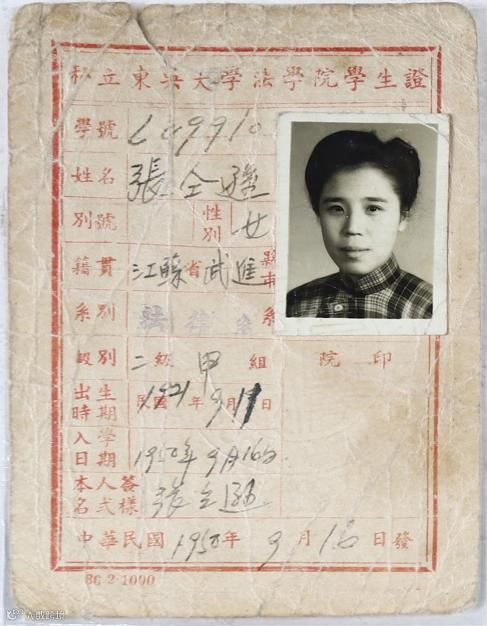 私立東吳大学法學院學生證
學號 L49910
姓名 張仝遜
別號 性別 女
籍貫 江蘇省武進縣市
系別 法律系 系
級別 二級甲組 院印
出生時期 民國1921年9月11日
入學日期 1950年9月16日
本人簽名式樣 張仝遜
中華民國1950年9月16日發
86·2·1000